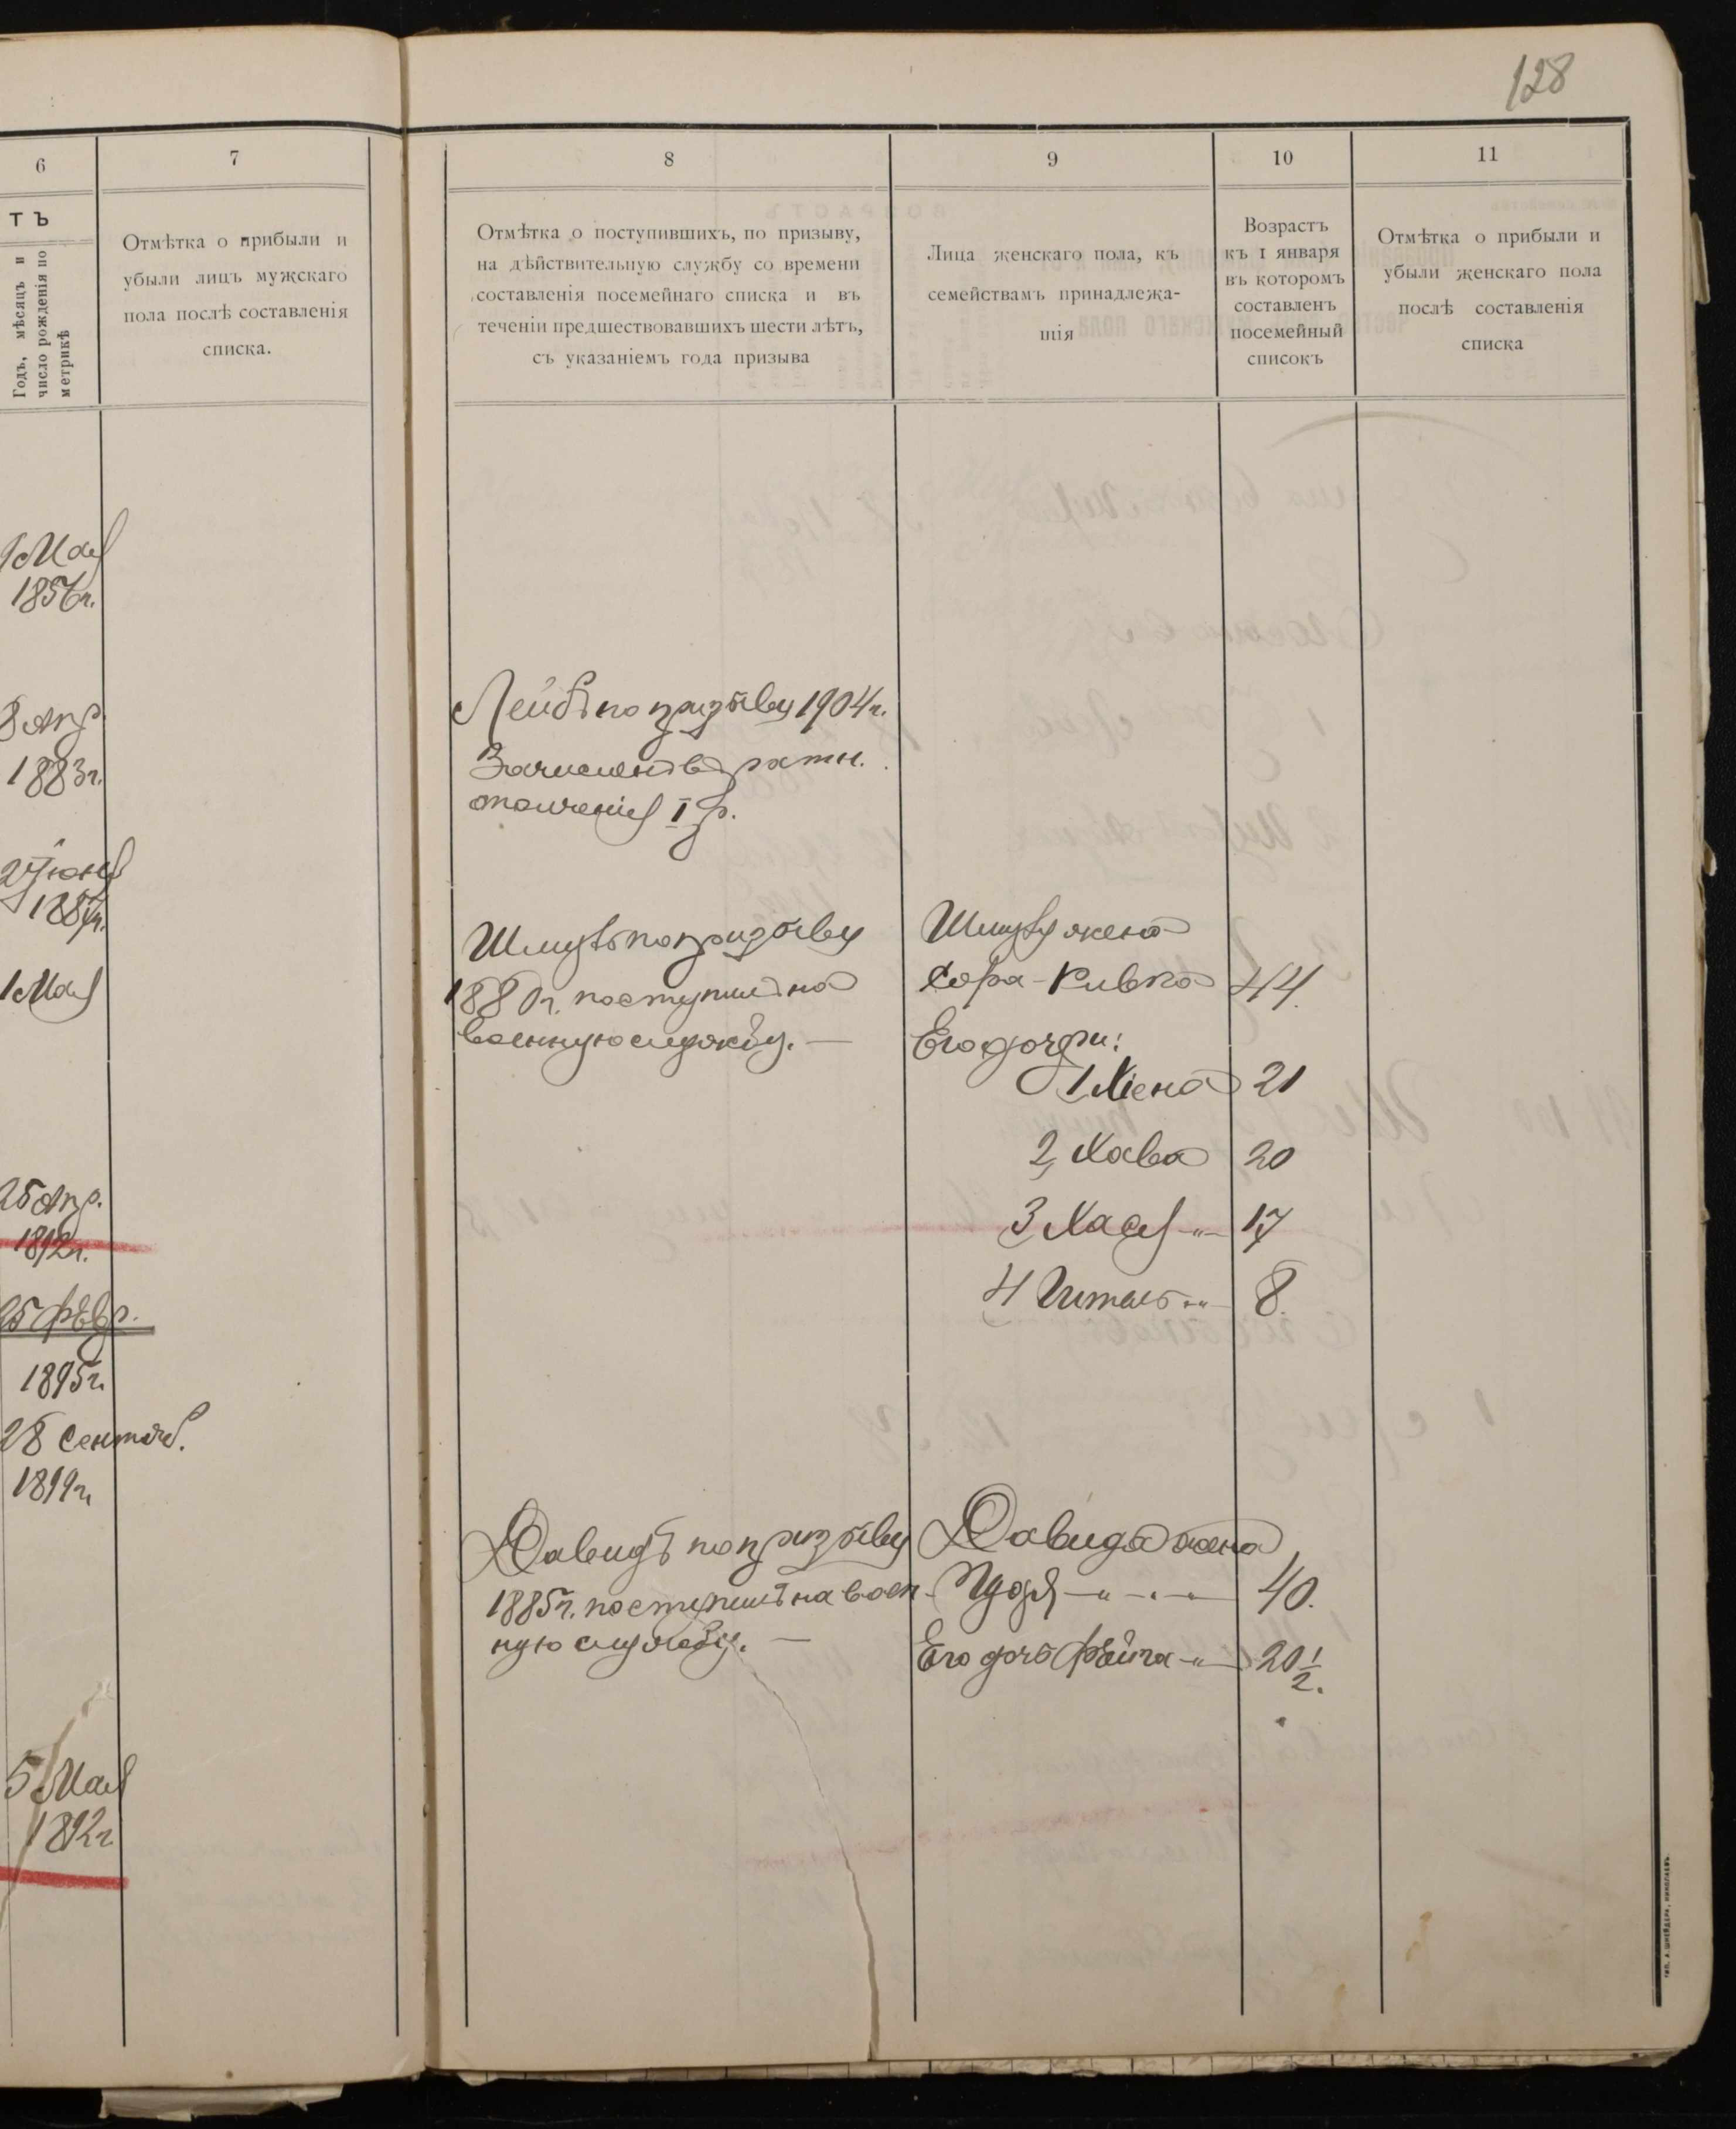 128
6
7
8
9
10
11
ТЪ
Годъ, мѣсяцъ и
число рожденія по
метрикѣ
Отмѣтка о прибыли и
убыли лицъ мужскаго
пола послѣ составленія
списка.
Отмѣтка о поступившихъ, по призыву,
на дѣйствительную службу со времени
составленія посемейнаго списка и въ
теченіи предшествовавшихъ шести лѣтъ,
съ указаніемъ года призыва
Лица женскаго пола, къ
семействамъ принадлежа-
щія
Возрастъ
къ 1 января
въ которомъ
составленъ
посемейный
списокъ
Отмѣтка о прибыли и
убыли женскаго пола
послѣ составленія
списка
Мая
1856 г.
8 Апр
1883 г.
Іюня
1887 г.
1 Мая
25 Апр.
1892 г.
25 Февр.
1895 г.
28 Сентяб.
1899 г.
5 Мая
1892 г.
Лейбъ по призыву 1904 г.
Зачисленъ въ ратн.
ополченія I р.
по призыву
1880 г. поступилъ на
военную службу. —
жена
Сора-Ривка 44.
Его дочери:
1 21
2, Хава 20
3, Хася -"- 17
4 Гитль -"- 8.
Давидъ по призыву
1885 г. поступилъ на воен-
ную службу. —
Давида жена
40.
Его дочь Фейга -"- 20 1/2.
ТИП. А. ШНЕЙДЕРЪ, НИКОЛАЕВЪ